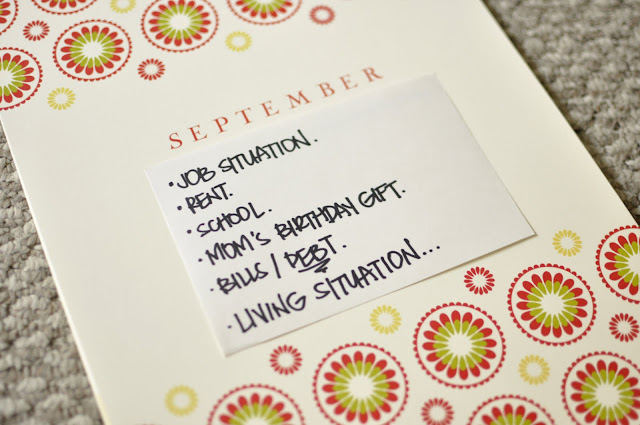 SEPTEMBER
• JOB SITUATION.
• RENT.
• SCHOOL.
• MOM'S BIRTHDAY GIFT.
• BILLS / DEBT.
• LIVING SITUATION...